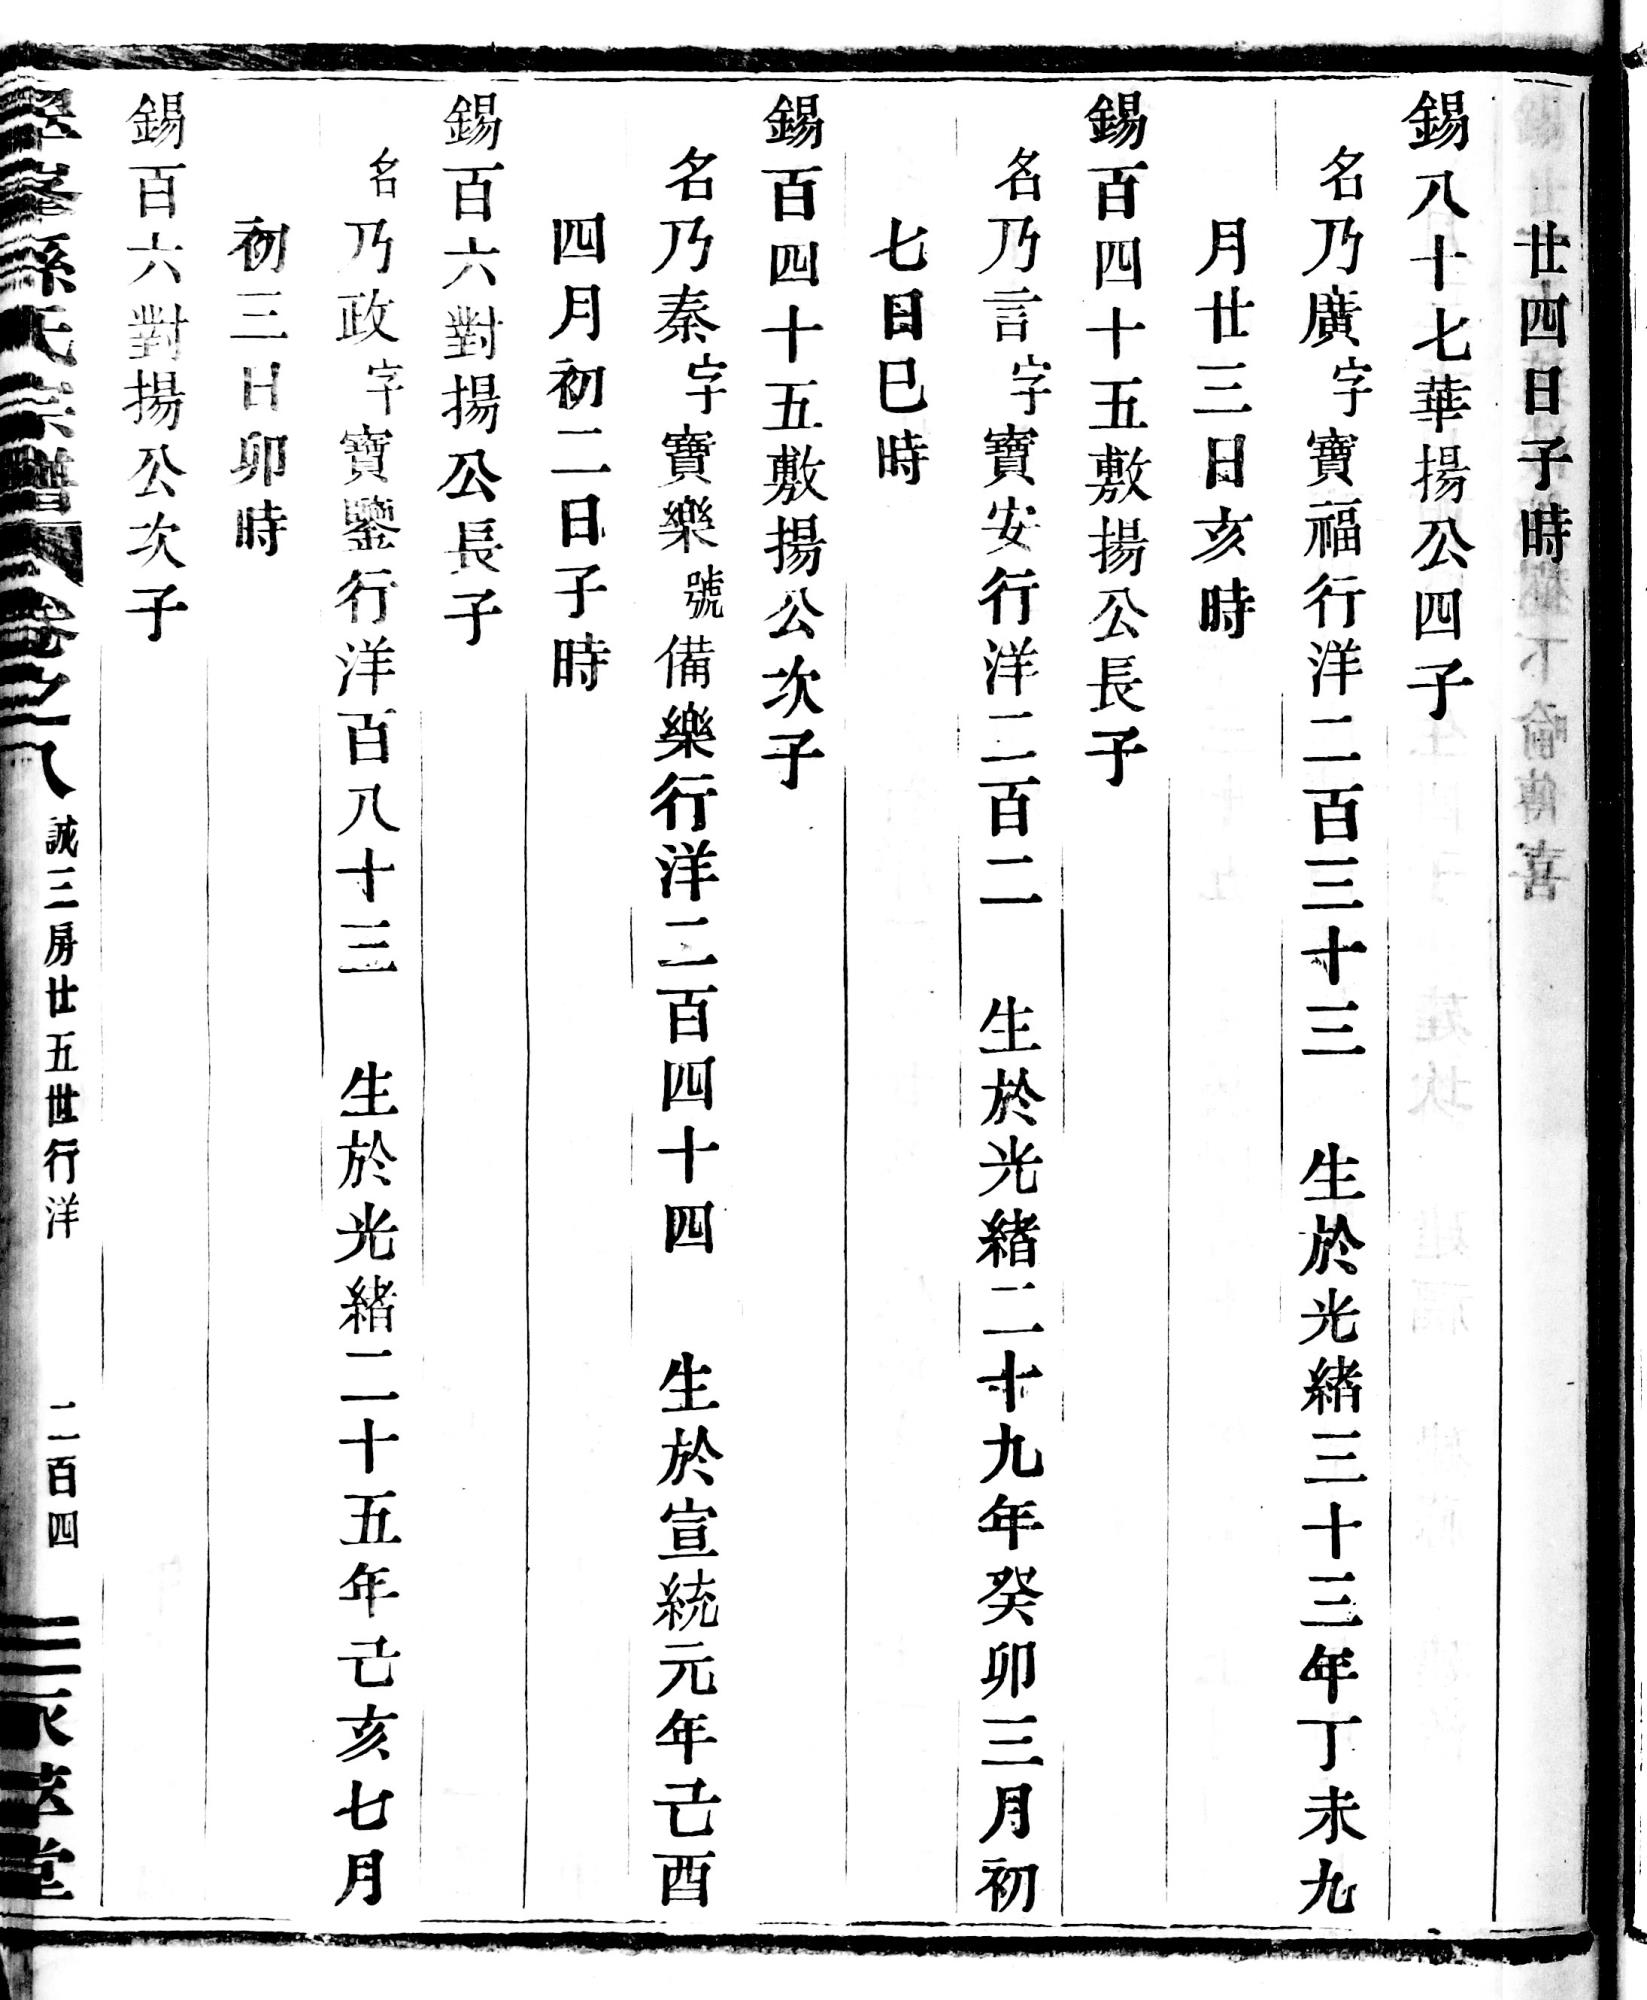 廿四日子時
錫八十七華揚公四子
名乃廣字寶福行洋二百三十三　生於光緒三十三年丁未九
月廿三日亥時
錫百四十五敷揚公長子
名乃言字寶安行洋二百二　生於光緒二十九年癸卯三月初
七日巳時
錫百四十五敷揚公次子
名乃秦字寶樂號備樂行洋二百四十四　生於宣統元年己酉
四月初二日子時
錫百六對揚公長子
名乃政字寶鑒行洋百八十三　生於光緒二十五年己亥七月
初三日卯時
錫百六對揚公次子
孫氏宗譜　卷之八　誠三房廿五世行洋　二百四　堂